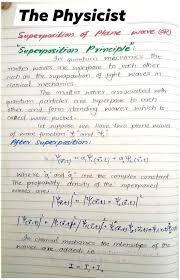 The Physicist
Superposition of Plane wave (OR)
"Superposition Principle"
In quantum mechanics the
matter waves are superpose to each other
such as the superposition of light waves in
classical mechanics.
The matter waves associated with
quantum particles are superpose to each
other and form standing waves which is
called wave packet.
let suppose we have two plane waves
of wave function Ψ₁ and Ψ₂
After superposition:
Where 'a₁' and 'a₂' are the complex constant
The probability density of the superposed
waves are:
In classical mechanics the intensities of the
waves are added i.e
I = I₁ + I₂